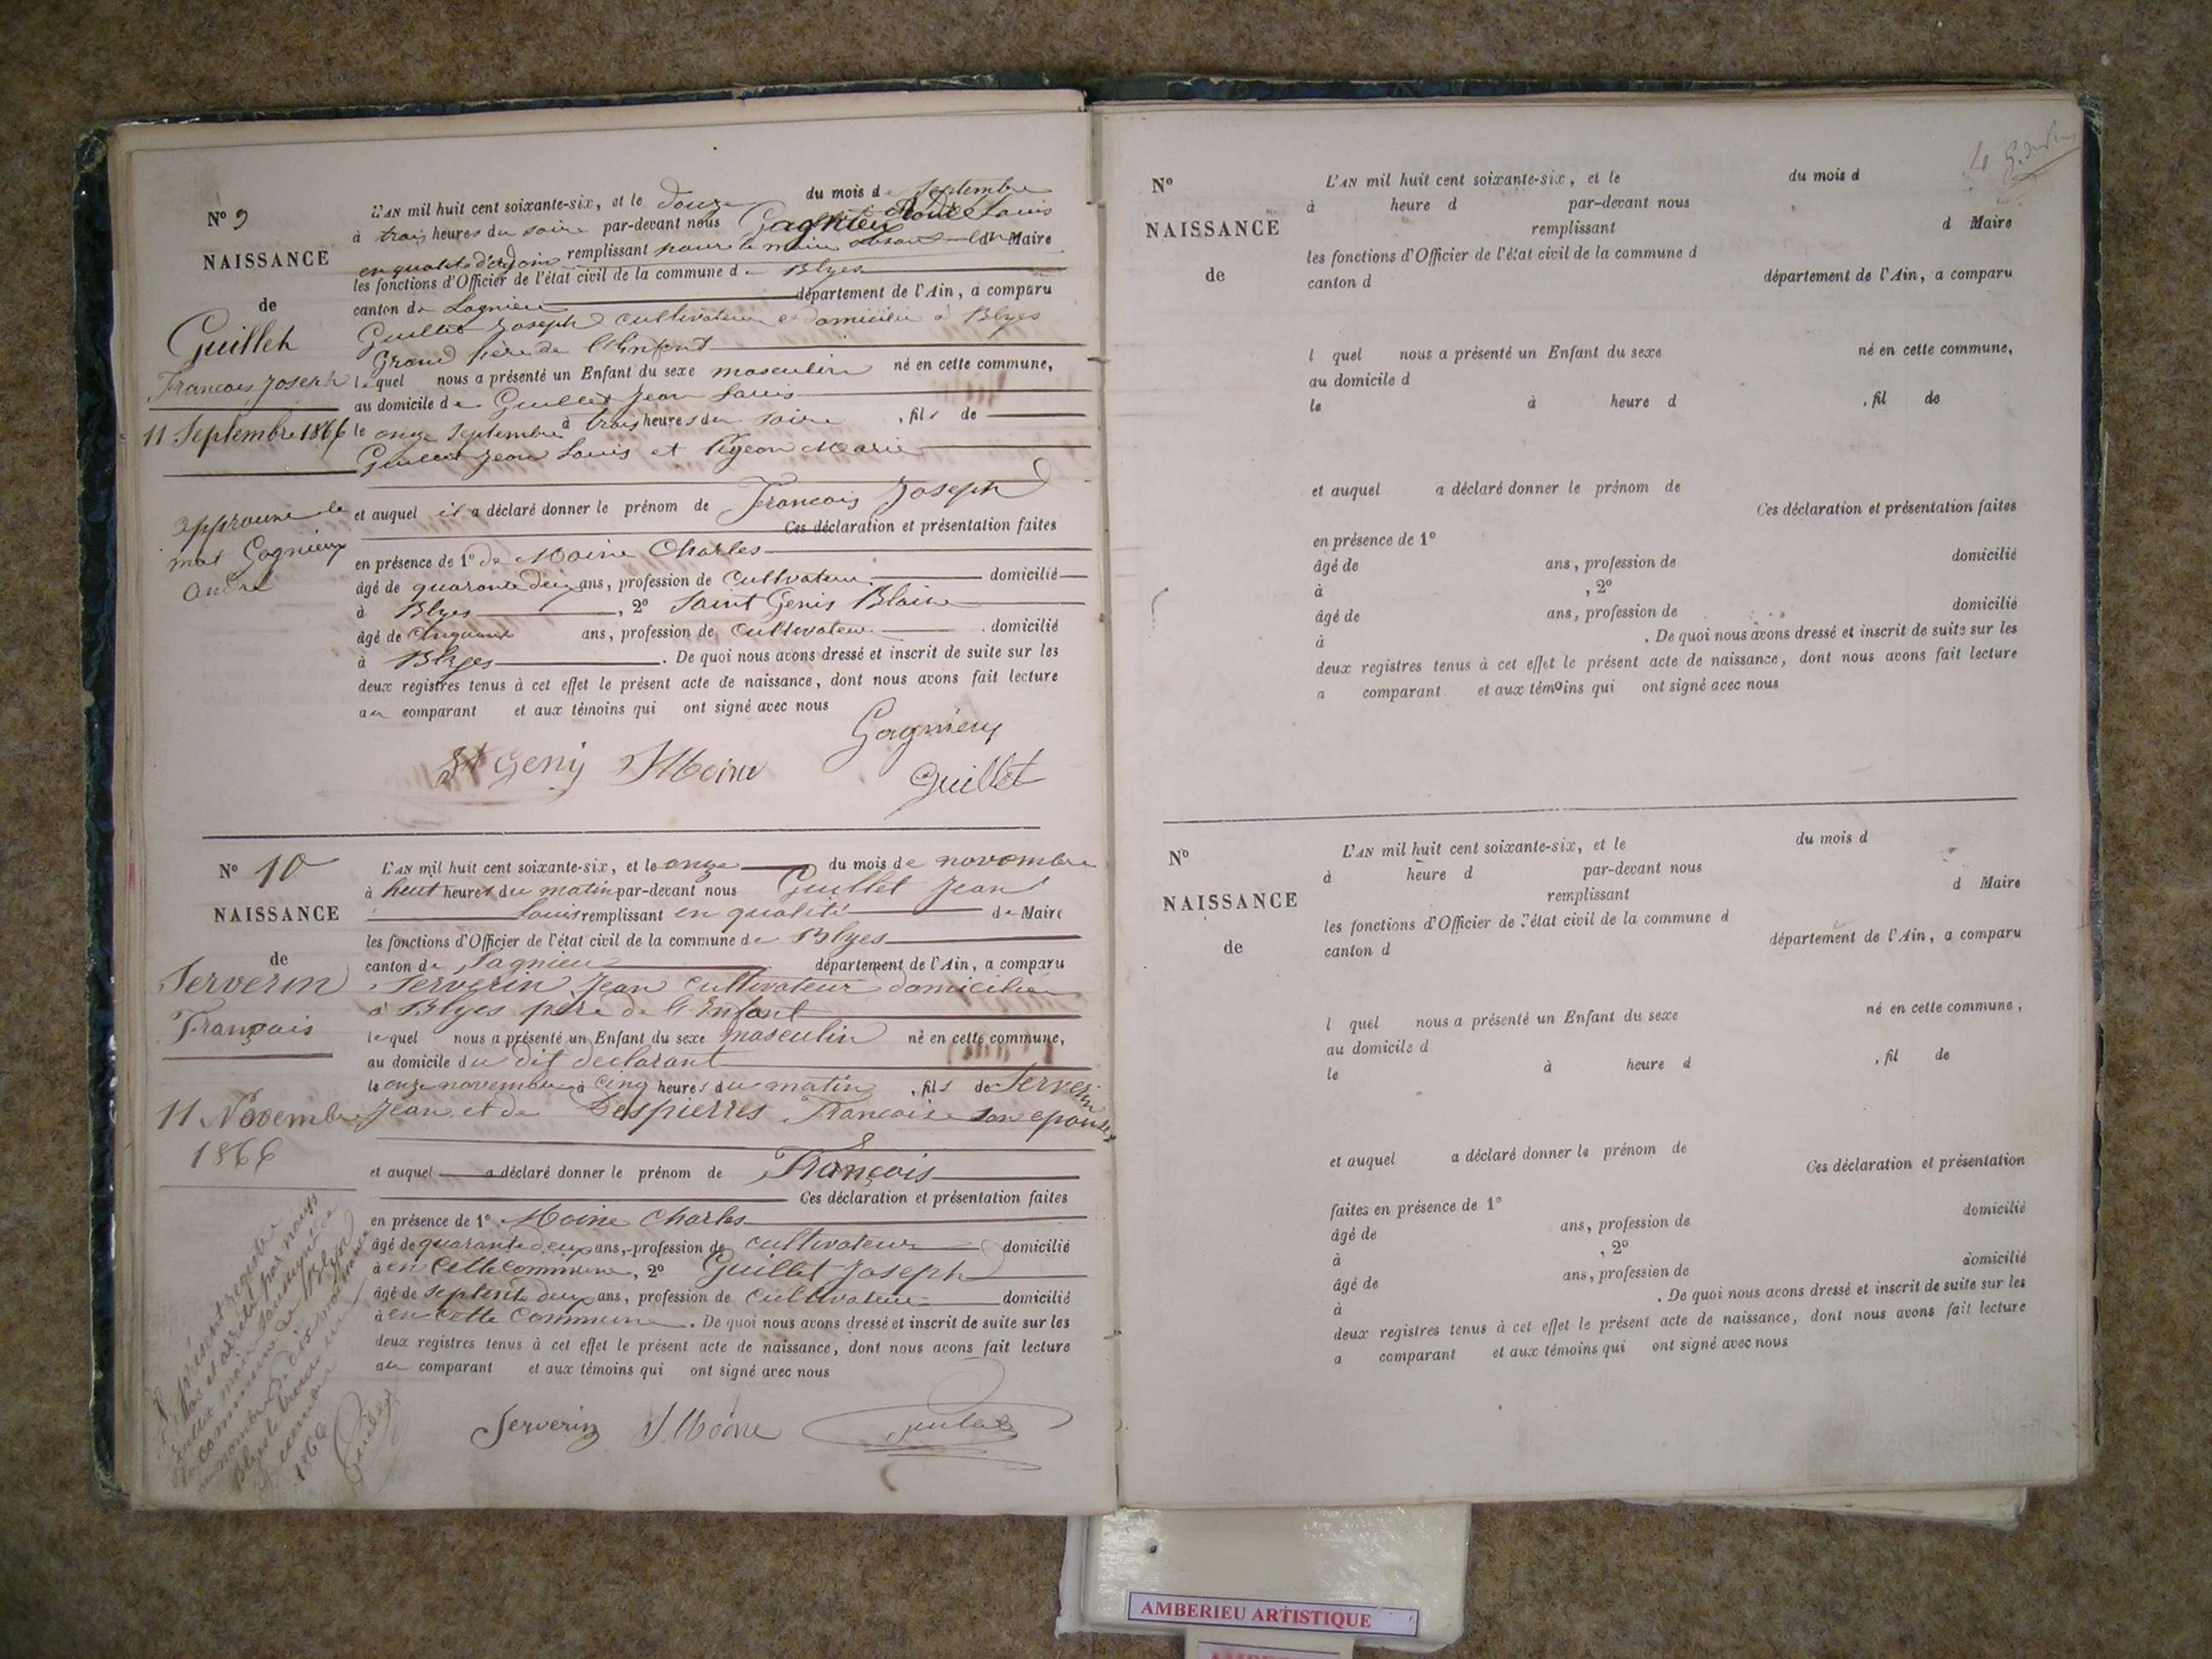 N° 9
NAISSANCE
de
Guillet
François Joseph
11 Septembre 1866
approuve le
mot Gagnieux
André
L'AN mil huit cent soixante-six, et le douze du mois de Septembre
à trois heures du soire par-devant nous Gagnieux André Louis
en qualité d'adjoin remplissant pour le maire absent d Maire
les fonctions d'Officier de l'état civil de la commune de Blyes
canton de Lagnieu département de l'Ain, a comparu
Guillet Joseph cultivateur domicilié à Blyes
Grand père de l'Enfant
lequel nous a présenté un Enfant du sexe masculin né en cette commune,
au domicile de Guillet Jean Louis
le onze Septembre à trois heures du soire, fils de
Guillet Jean Louis et Pigeon Marie
et auquel il a déclaré donner le prénom de François Joseph
Ces déclaration et présentation faites
en présence de 1° de Moine Charles
âgé de quarante deux ans, profession de Cultivateur domicilié
à Blyes, 2° Saint Genis Blaise
âgé de cinquante ans, profession de cultivateur domicilié
à Blyes. De quoi nous avons dressé et inscrit de suite sur les
deux registres tenus à cet effet le présent acte de naissance, dont nous avons fait lecture
au comparant et aux témoins qui ont signé avec nous
Gagnieux
St Genis Moine
Guillet
N° 10
NAISSANCE
de
Serverin
François
11 Novembre
1866
L'AN mil huit cent soixante-six, et le onze du mois de novembre
à huit heures du matin par-devant nous Guillet Jean
Louis remplissant en qualité de Maire
les fonctions d'Officier de l'état civil de la commune de Blyes
canton de Lagnieu département de l'Ain, a comparu
Serverin Jean cultivateur domicilié
à Blyes père de l'Enfant
lequel nous a présenté un Enfant du sexe masculin né en cette commune,
au domicile du dit déclarant
le onze novembre à cinq heures du matin, fils de Serverin
Jean et de Despierres Francoise son epouse
et auquel a déclaré donner le prénom de François
Ces déclaration et présentation faites
en présence de 1° Moine Charles
âgé de quarante deux ans, profession de cultivateur domicilié
à en cette commune, 2° Guillet Joseph
âgé de septente deux ans, profession de cultivateur domicilié
à en cette commune. De quoi nous avons dressé et inscrit de suite sur les
deux registres tenus à cet effet le présent acte de naissance, dont nous avons fait lecture
au comparant et aux témoins qui ont signé avec nous
Serverin Moine Guillet
présent registre
clos et arrêté par nous
Guillet maire soussigné de
la commune de Blyes
au nombre de dix
Blyes le
1866
Guillet
N°
NAISSANCE
de
L'AN mil huit cent soixante-six, et le du mois d
à heure d par-devant nous
remplissant d Maire
les fonctions d'Officier de l'état civil de la commune d
canton d département de l'Ain, a comparu
l quel nous a présenté un Enfant du sexe né en cette commune,
au domicile d
le à heure d , fil de
et auquel a déclaré donner le prénom de
Ces déclaration et présentation faites
en présence de 1°
âgé de ans, profession de domicilié
à , 2°
âgé de ans, profession de domicilié
à . De quoi nous avons dressé et inscrit de suite sur les
deux registres tenus à cet effet le présent acte de naissance, dont nous avons fait lecture
a comparant et aux témoins qui ont signé avec nous
N°
NAISSANCE
de
L'AN mil huit cent soixante-six, et le du mois d
à heure d par-devant nous
remplissant d Maire
les fonctions d'Officier de l'état civil de la commune d
canton d département de l'Ain, a comparu
l quel nous a présenté un Enfant du sexe né en cette commune,
au domicile d
le à heure d , fil de
et auquel a déclaré donner le prénom de
Ces déclaration et présentation
faites en présence de 1°
âgé de ans, profession de domicilié
à , 2°
âgé de ans, profession de domicilié
à . De quoi nous avons dressé et inscrit de suite sur les
deux registres tenus à cet effet le présent acte de naissance, dont nous avons fait lecture
a comparant et aux témoins qui ont signé avec nous
AMBERIEU ARTISTIQUE